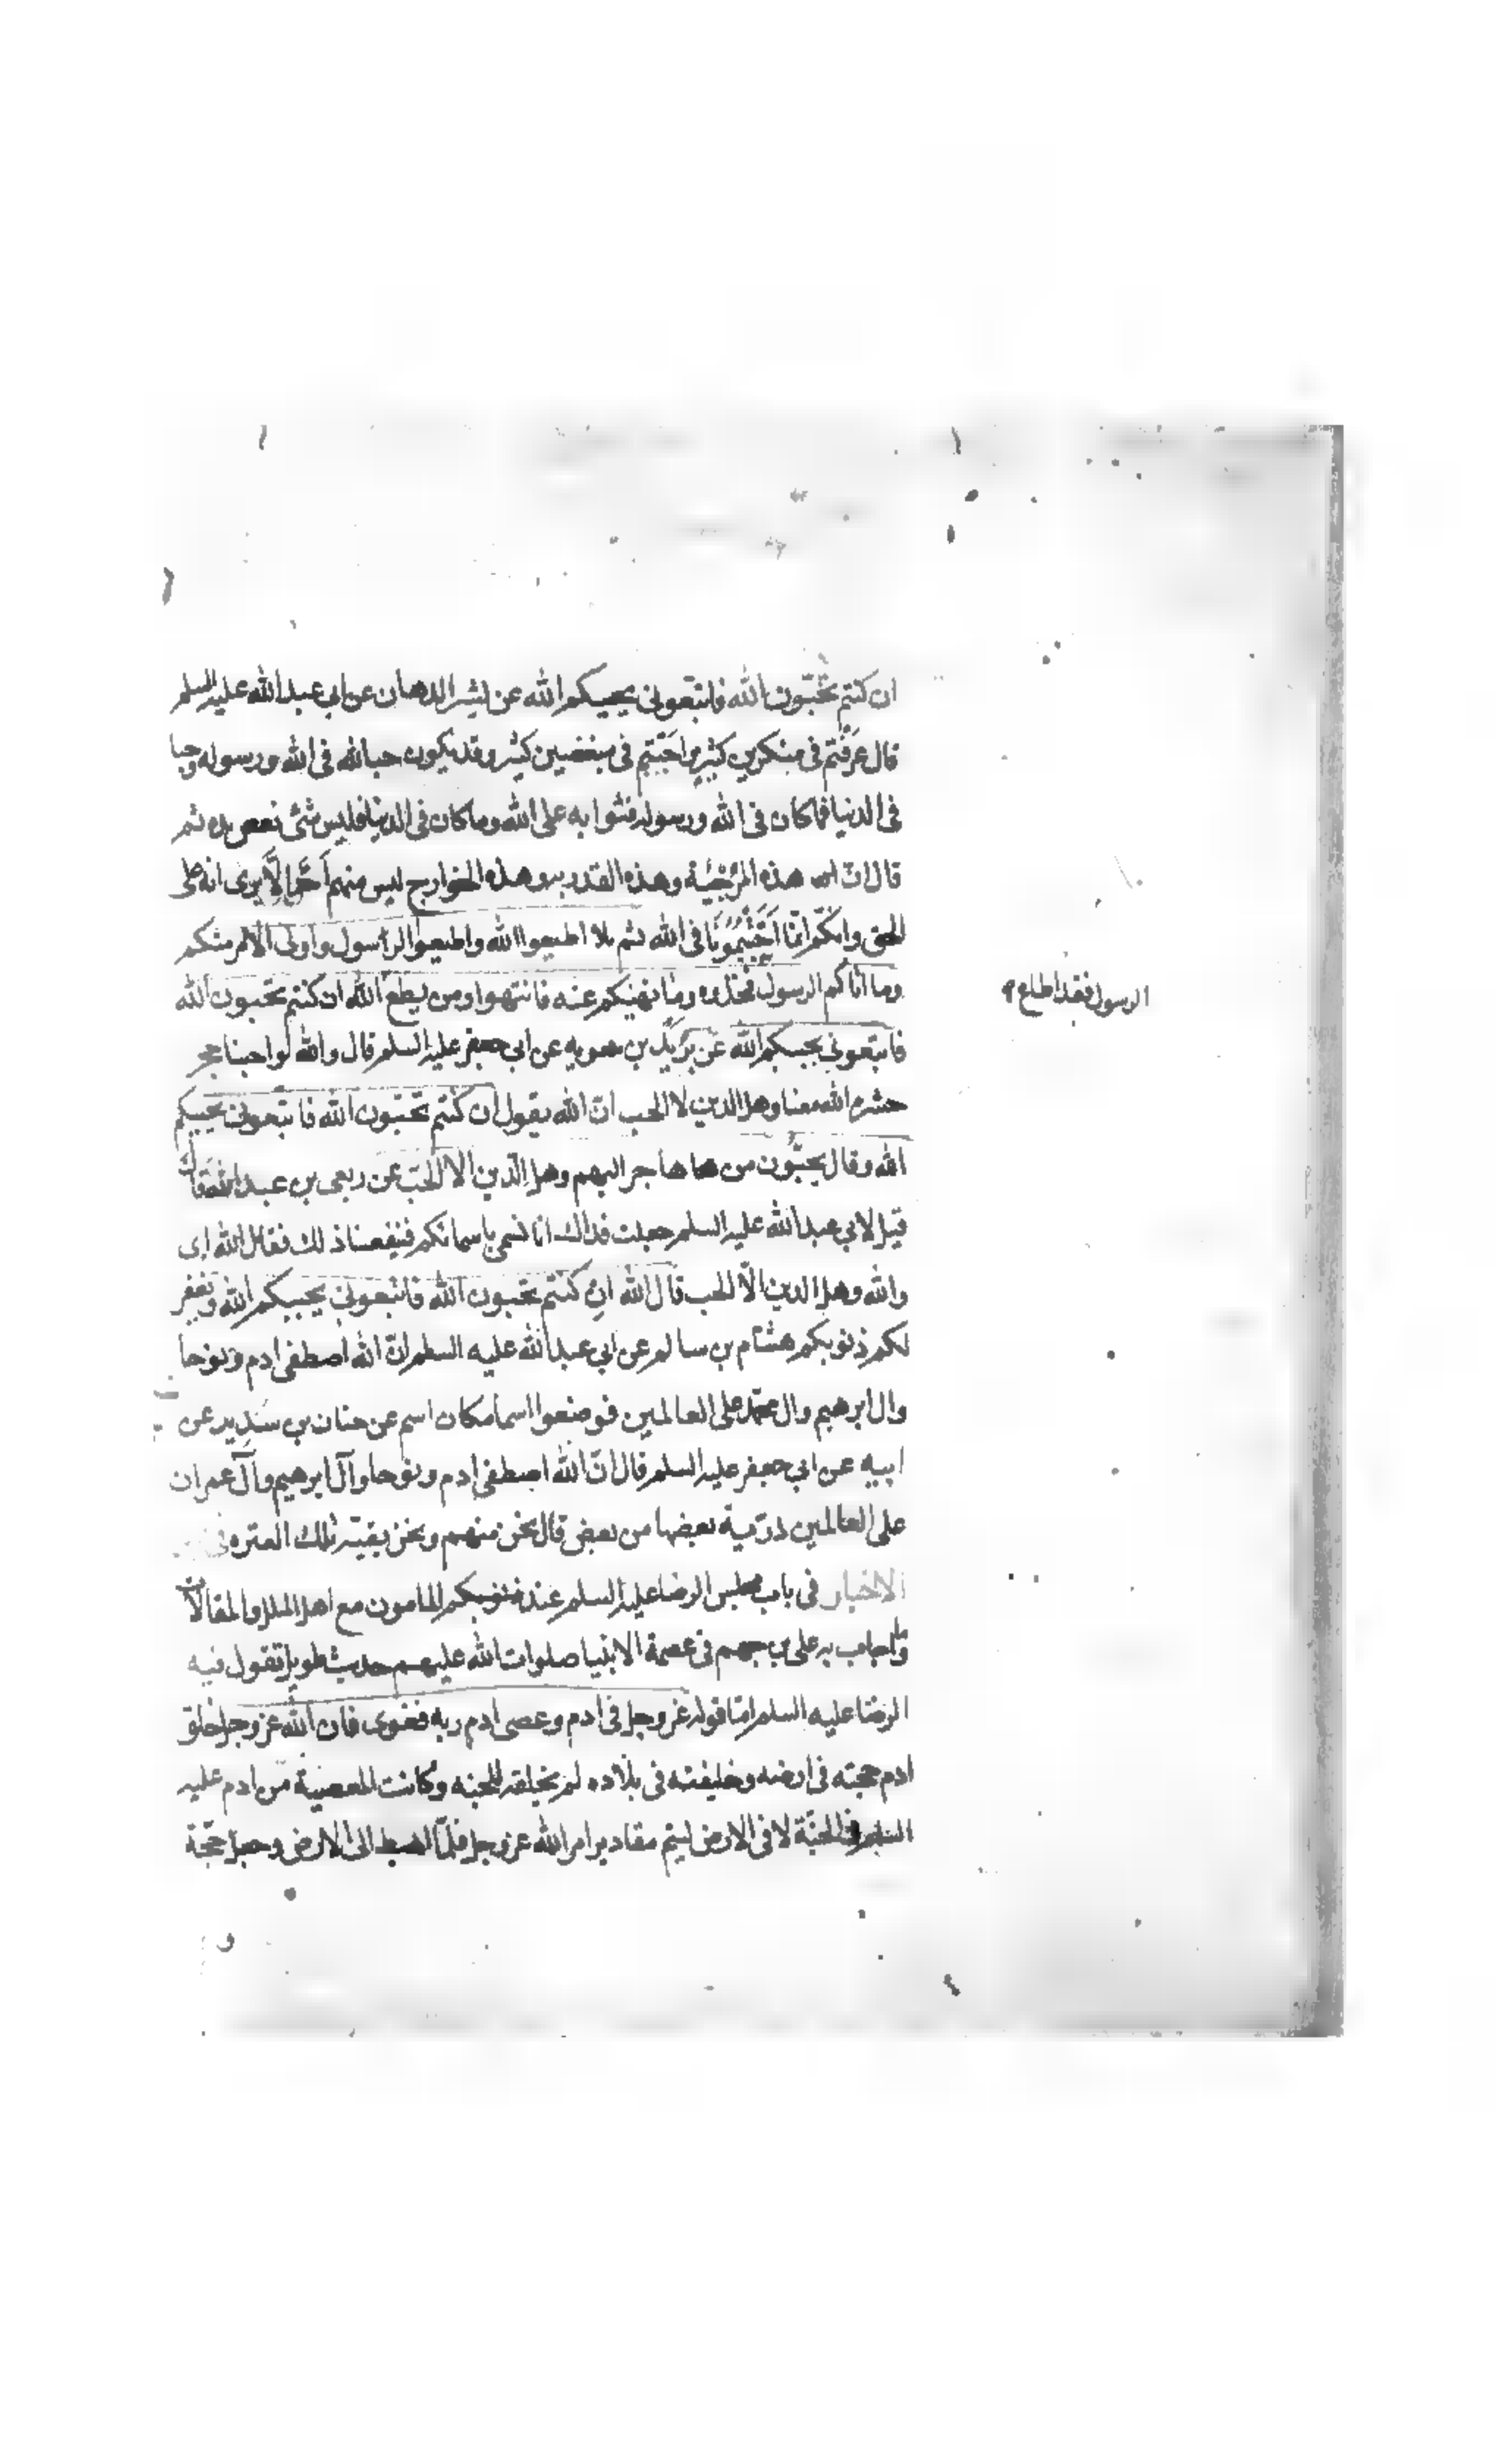 ان كنتم تحبّون الله فاتبعوني يحببكم الله عن بشير الدهان عن ابي عبد الله عليه السلم
قال عرفتم في منكرين كثير واحببتم في مبغضين كثير وقد يكون حبا لله في الله ورسوله وحبا
في الدنيا فما كان في الله ورسوله فثوابه على الله وما كان في الدنيا فليس شئ ثم
قال ان هذه المرجئة وهذه القدريه وهذه الخوارج ليس منهم احد الا يرى انه على
الحق وانكم انما احببتمونا في الله ثم تلا اطيعوا الله واطيعوا الرسول واولى الامر منكم
وما اتاكم الرسول فخذوه وما نهيكم عنه فانتهوا ومن يطع الله ان كنتم تحبون الله
الرسول فقد اطاع
فاتبعوني يحببكم الله عن بريد بن معويه عن ابي جعفر عليه السلم قال والله لو احبنا حجر
حشره الله معنا وهل الدين الا الحب ان الله يقول ان كنتم تحبّون الله فاتبعوني يحببكم
الله وقال يحبّون من هاجر اليهم وهل الدين الا الحب عن ربعي بن عبد الله قال
قيل لابي عبد الله عليه السلم جعلت فداك انا نسمي باسمائكم فينفعنا ذلك فقال الله اي
والله وهل الدين الّا الحب قال الله ان كنتم تحبون الله فاتبعوني يحببكم الله ويغفر
لكم ذنوبكم هشام بن سالم عن ابي عبد الله عليه السلم ان الله اصطفى ادم ونوحا
وال ابرهيم وال محمد على العالمين فوضعوا اسما مكان اسم عن حنان بن سدير عن
ابيه عن ابي جعفر عليه السلم قال ان الله اصطفى ادم ونوحا وآل ابرهيم وآل عمران
على العالمين ذريّة بعضها من بعض قال نحن منهم ونحن بقية تلك العتره في
الاخبار في باب مجلس الرضا عليه السلم عند المامون مع اهل الملل والمقالات
وما اجاب به على بن جهم في عصمة الانبيا صلوات الله عليهم حديث طويل يقول فيه
الرضا عليه السلم امّا قوله عز وجل في ادم وعصى ادم ربه فغوى فان الله عز وجل خلق
ادم حجته في ارضه وخليفته في بلاده لم يخلقه للجنه وكانت المعصية من ادم عليه
السلم في الجنّة لا في الارض ليتم مقادير امر الله عز وجل فلمّا اهبط الى الارض وجعل حجّة